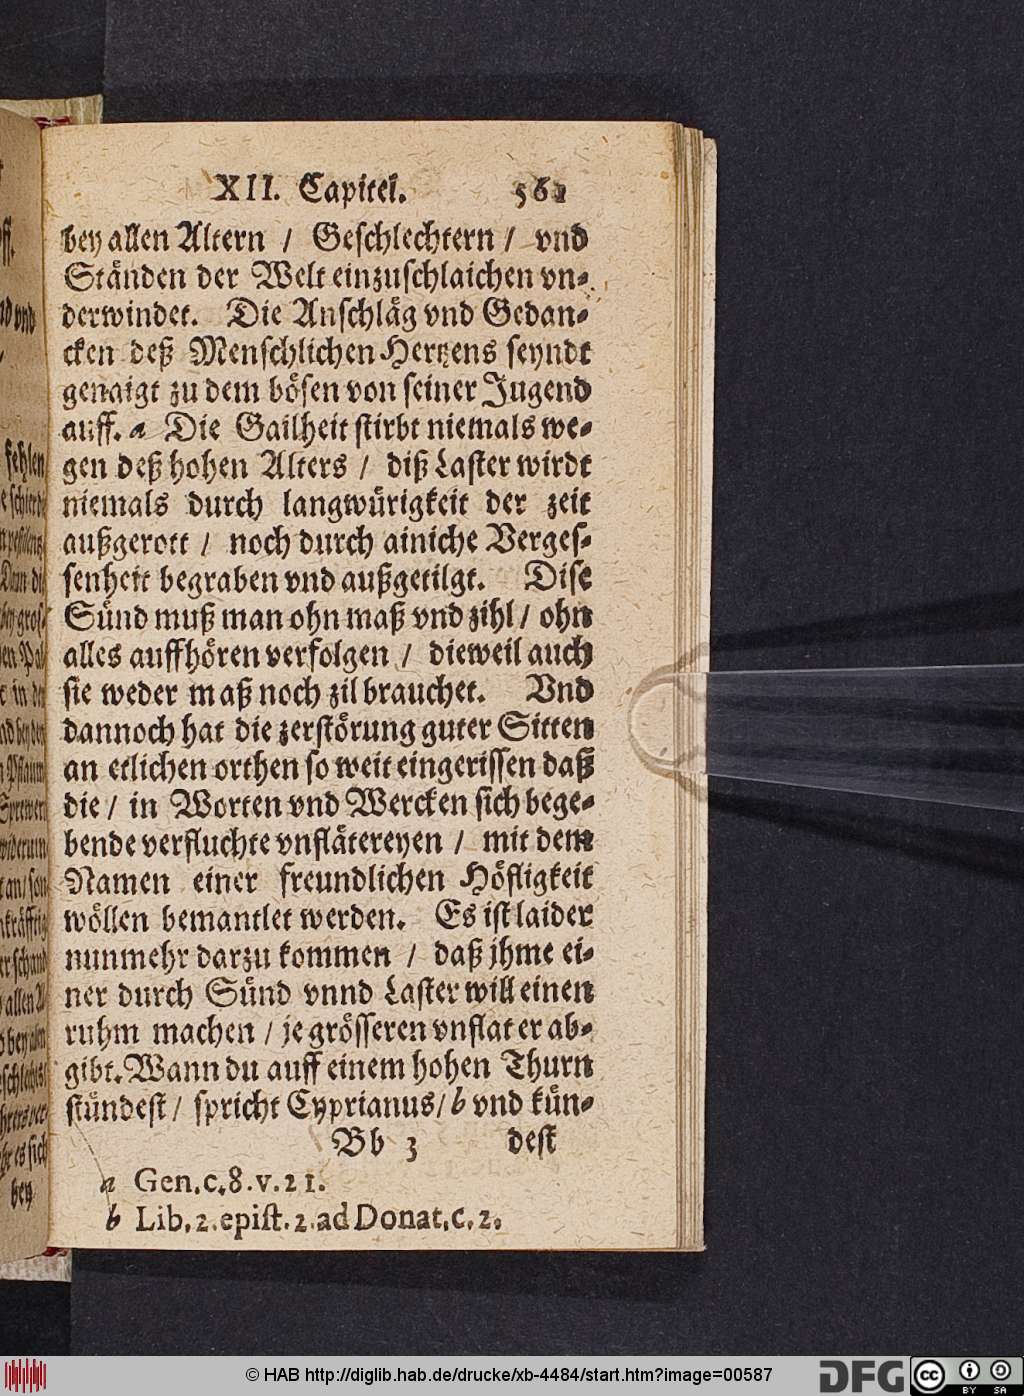 XII. Capitel. 561
bey allen Altern / Geschlechtern / vnd
Ständen der Welt einzuschlaichen vn-
derwindet. Die Anschläg vnd Gedan-
cken deß Menschlichen Hertzens seyndt
genaigt zu dem bösen von seiner Jugend
auff. a Die Gailheit stirbt niemals we-
gen deß hohen Alters / diß Laster wirdt
niemals durch langwürigkeit der zeit
außgerott / noch durch ainiche Verges-
senheit begraben vnd außgetilgt. Dise
Sünd muß man ohn maß vnd zihl / ohn
alles auffhören verfolgen / dieweil auch
sie weder maß noch zil brauchet. Vnd
dannoch hat die zerstörung guter Sitten
an etlichen orthen so weit eingerissen daß
die / in Worten vnd Wercken sich bege-
bende verfluchte vnflätereyen / mit dem
Namen einer freundlichen Höfligkeit
wöllen bemantlet werden. Es ist laider
nunmehr darzu kommen / daß jhme ei-
ner durch Sünd vnnd Laster will einen
ruhm machen / je grösseren vnflat er ab-
gibt. Wann du auff einem hohen Thurn
stündest / spricht Cyprianus / b vnd kün-
Bb 3 dest
a Gen. c. 8. v. 21.
b Lib. 2. epist. 2. ad Donat. c. 2.
© HAB http://diglib.hab.de/drucke/xb-4484/start.htm?image=00587
DFG
cc BY SA